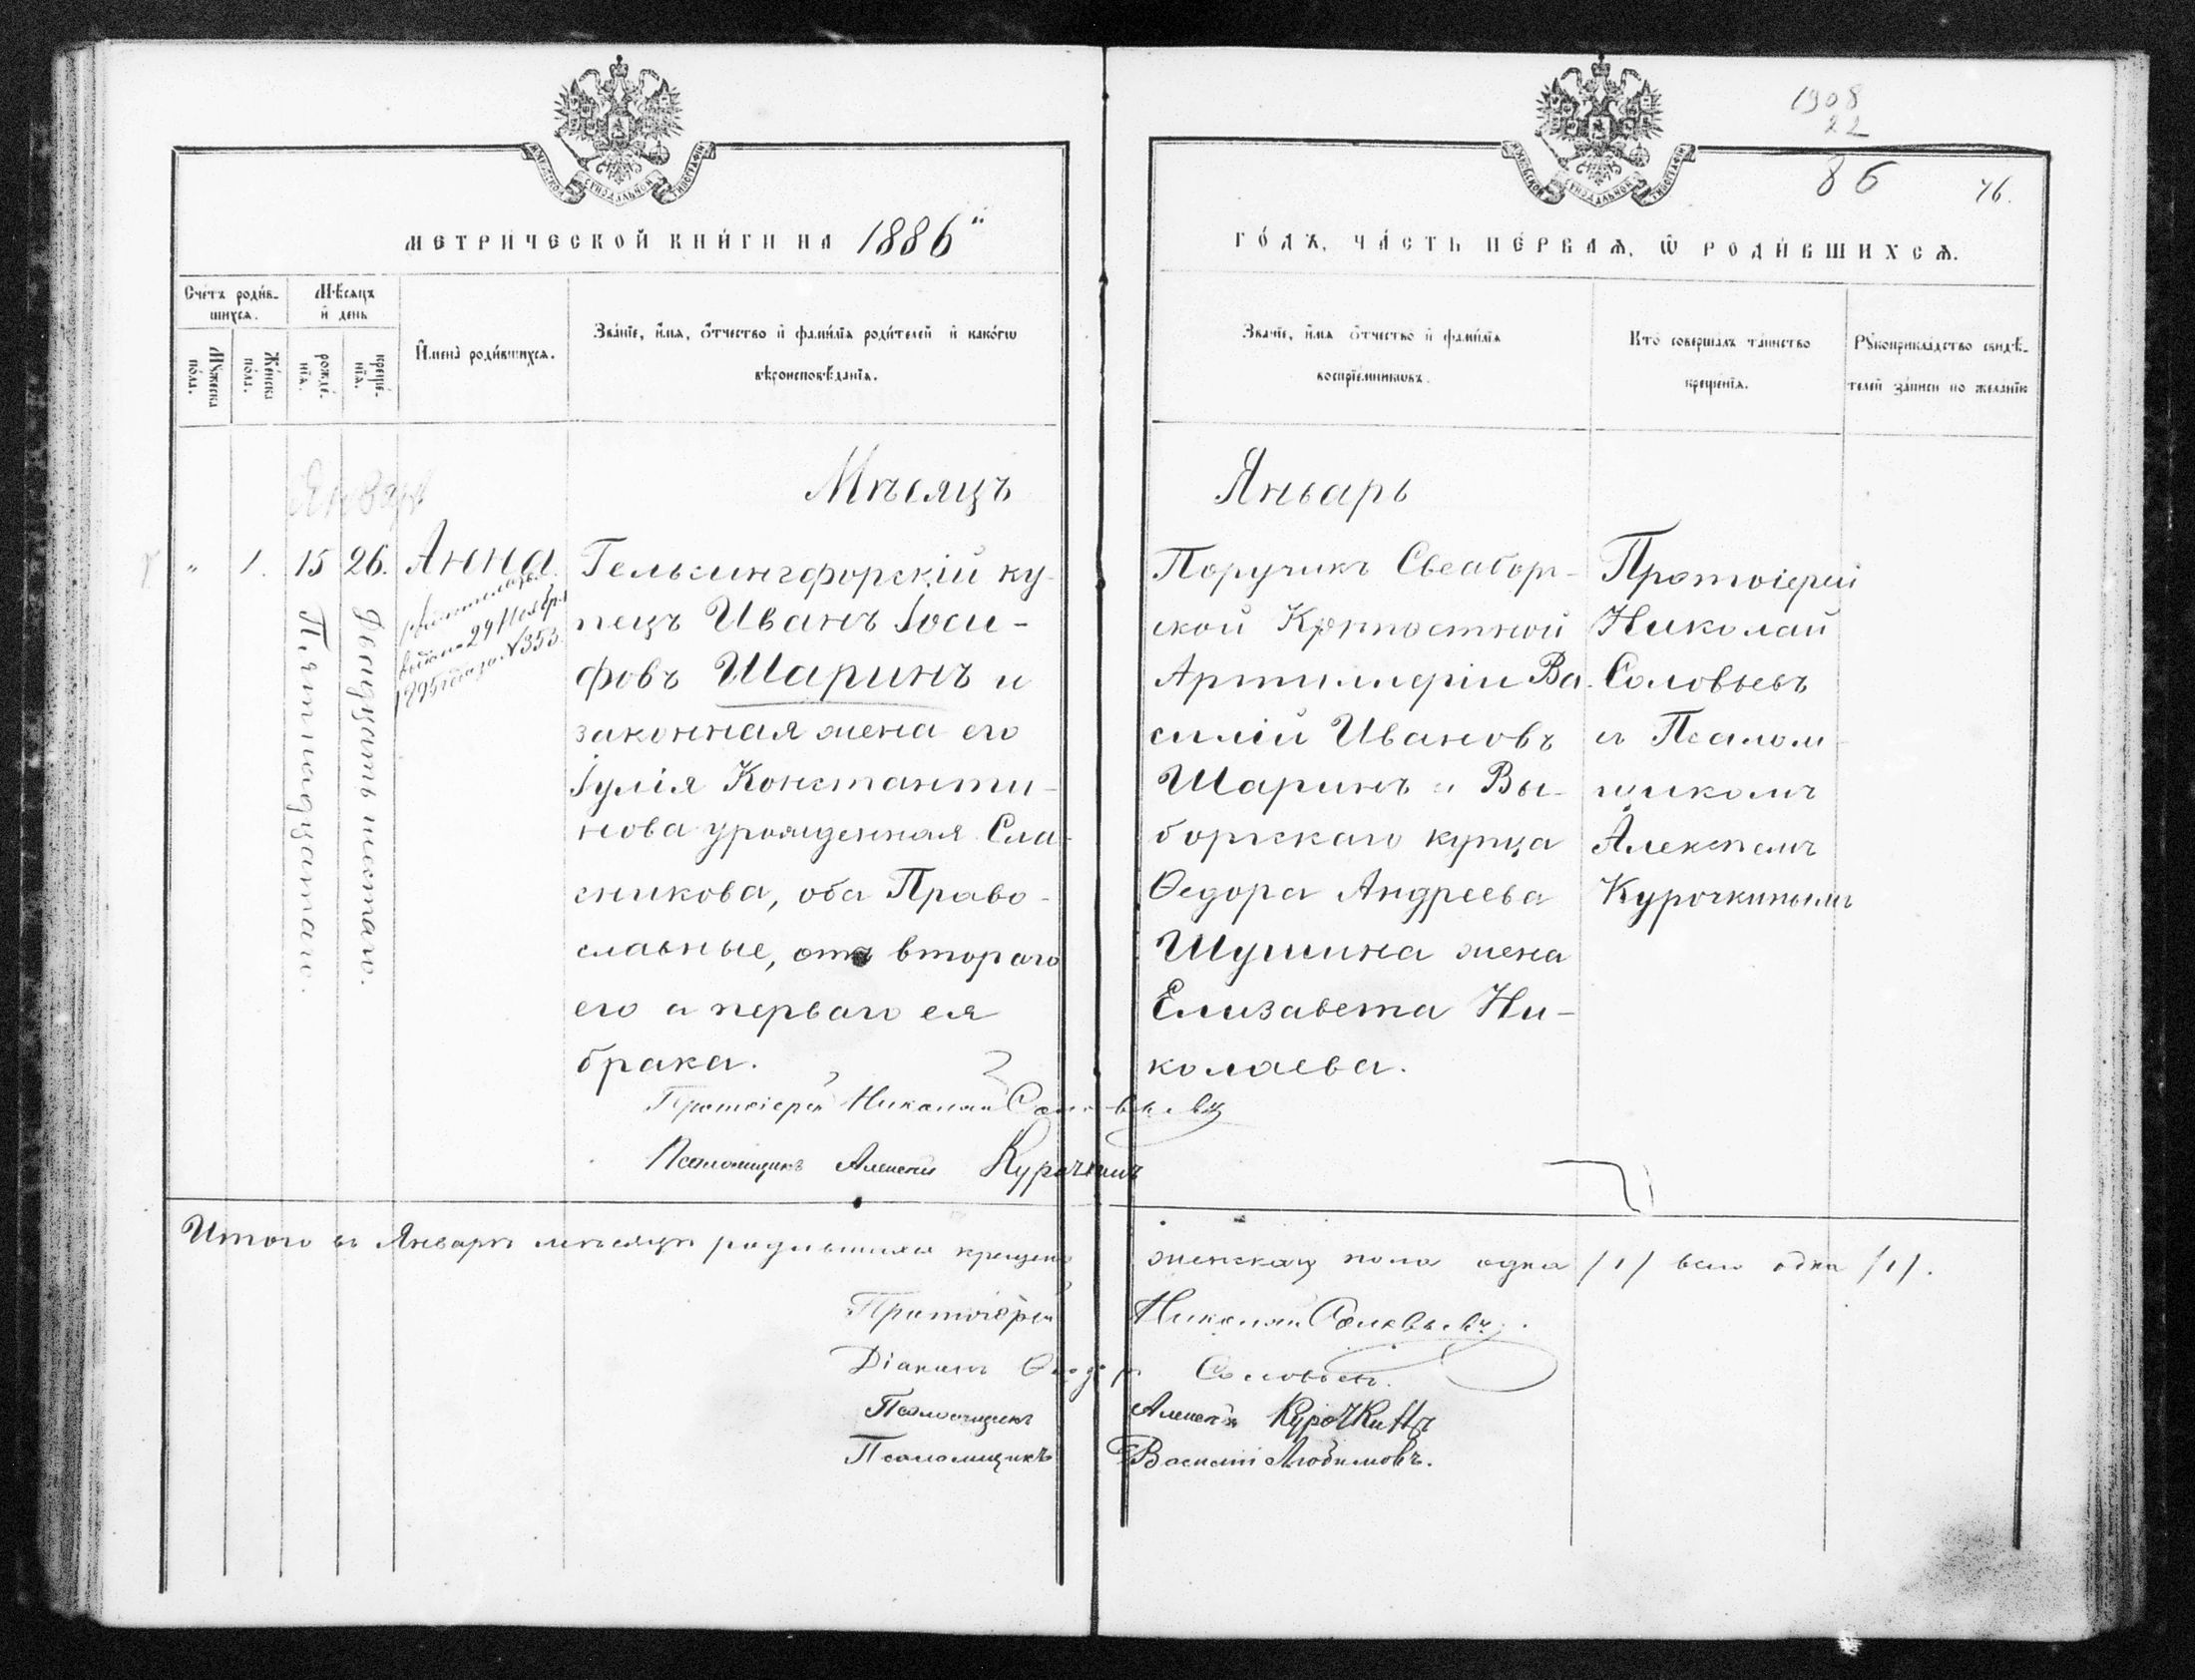 1908
22
86
76.
МЕТРИЧЕСКОЙ КНИГИ НА 1886"
ГОДЪ, ЧАСТЬ ПЕРВАЯ, Ѡ РОДИВШИХСЯ.
Счетъ родив-
шихся.
Мѣсяцъ
и день
Мужеска
пола.
Женска
пола.
рожде-
нія.
креще-
нія.
Имена родившихся.
Званіе, имя, отчество и фамилія родителей и какогω
вѣроисповѣданія.
Званіе, имя отчество и фамилія
воспріемниковъ.
Кто совершалъ таинство
крещенія.
Рꙋкоприкладство свидѣ-
телей записи по желанію
Январь
Мѣсяцъ
Январь
" 1. 15 26. Анна
Пятнадцатаго.
Двадцать шестаго.
29 Ноября
1895 года за №353.
Гельсингфорскій ку-
пецъ Иванъ Іоси-
фовъ Шаринъ и
законная жена его
Іулія Константи-
нова урожденная Сла-
сникова, оба Право-
славные, отъ втораго
его а перваго ея
брака.
Поручикъ Свеаборг-
ской Крѣпостной
Артиллеріи Ва-
силій Ивановъ
Шаринъ и Вы-
боргскаго купца
Ѳедора Андреева
Шушина жена
Елизавета Ни-
колаева.
Протоіерей
Николай
Соловьевъ
съ Псалом-
щикомъ
Алексѣемъ
Курочкинымъ
Протоіерей Николай Соловьевъ
Псаломщикъ Алексей Курочкинъ
Итого въ Январѣ мѣсяцѣ родившихся крещено женскаго пола одна /1/ всего одна /1/.
Протоіерей Николай Соловьевъ.
Діаконъ Ѳеодоръ Соловьевъ.
Псаломщикъ Алексѣй Курочкинъ
Псаломщикъ Василій Любимовъ.